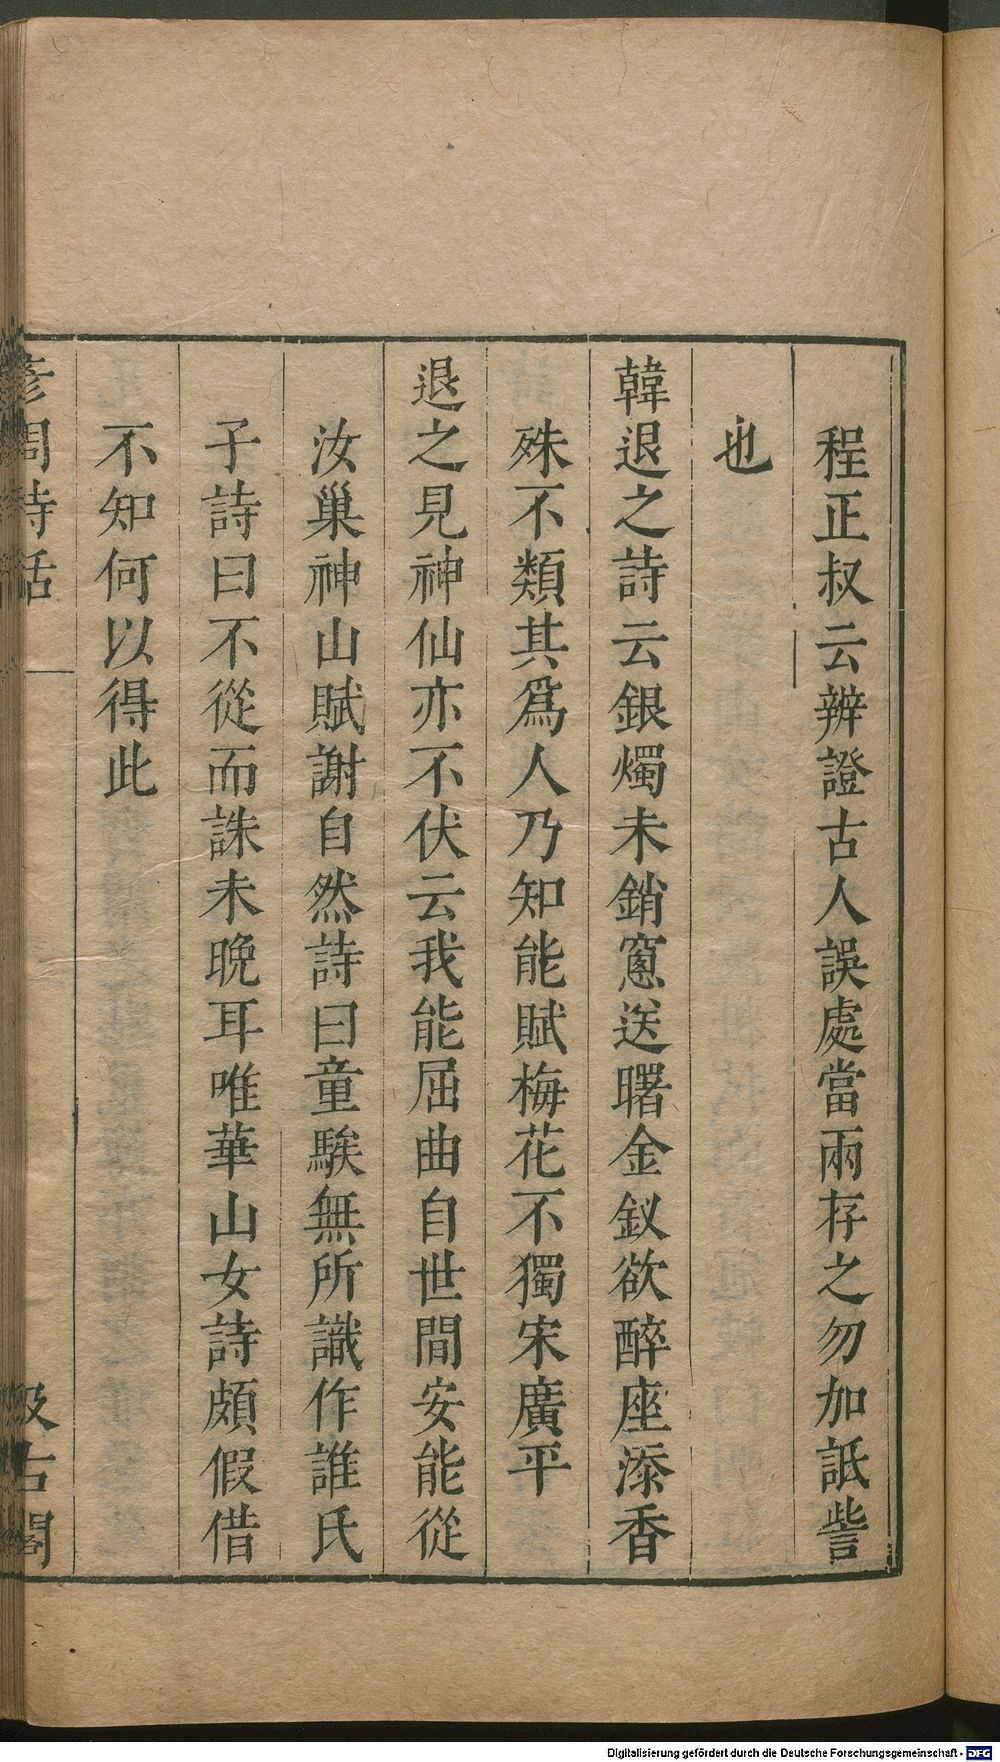 程正叔云辨證古人誤處當兩存之勿加詆訾
也
韓退之詩云銀燭未銷窻送曙金釵欲醉座添香
殊不類其爲人乃知能賦梅花不獨宋廣平
退之見神仙亦不伏云我能屈曲自世間安能從
汝巢神山賦謝自然詩曰童騃無所識作誰氏
子詩曰不從而誅未晚耳唯華山女詩頗假借
不知何以得此
彦周詩話
汲古閣
Digitalisierung gefördert durch die Deutsche Forschungsgemeinschaft - DFG